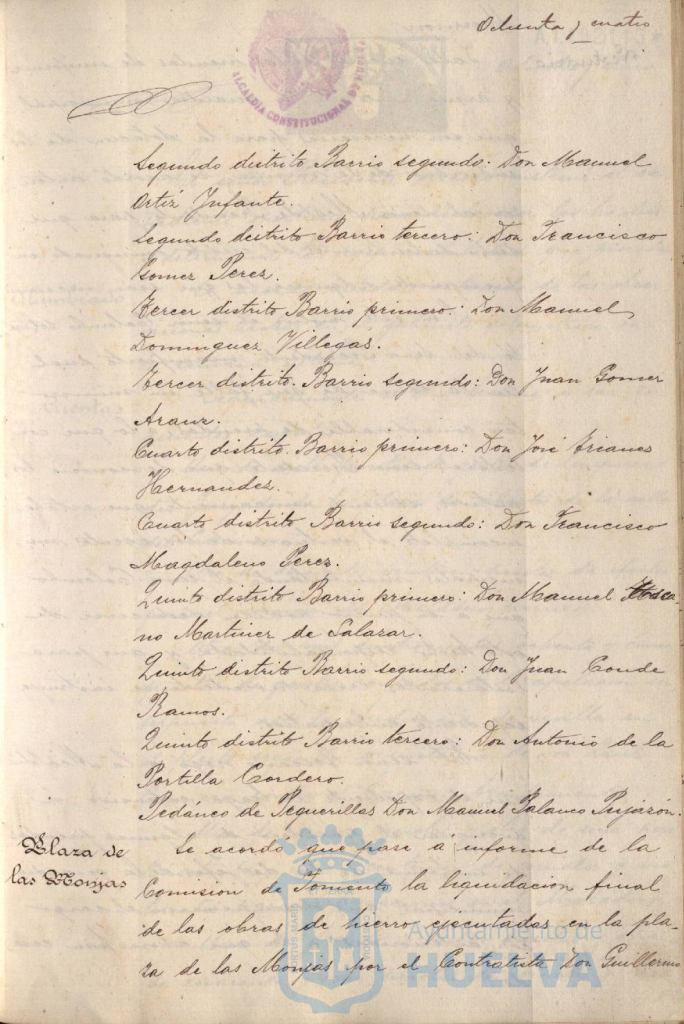 Ochenta y cuatro
ALCALDIA CONSTITUCIONAL DE HUELVA
Segundo distrito Barrio segundo: Don Manuel
Ortiz Infante.
Segundo distrito Barrio tercero: Don Francisco
Gomez Perez.
Tercer distrito Barrio primero: Don Manuel
Dominguez Villegas.
Tercer distrito. Barrio segundo: Don Juan Gomez
Arauz.
Cuarto distrito. Barrio primero: Don José
Hernandez.
Cuarto distrito Barrio segundo: Don Francisco
Magdaleno Perez.
Quinto distrito Barrio primero: Don Manuel
no Martinez de Salazar.
Quinto distrito Barrio segundo: Don Juan Conde
Ramos.
Quinto distrito Barrio tercero: Don Antonio de la
Portilla Cordero.
Pedáneo de Peguerillas Don Manuel Palanco Pujazón.
Plaza de
las Monjas
Se acordó que pase á informe de la
Comision de Fomento la liquidacion final
de las obras de hierro ejecutadas en la pla-
za de las Monjas por el Contratista Don Guillermo
Ayuntamiento de
HUELVA